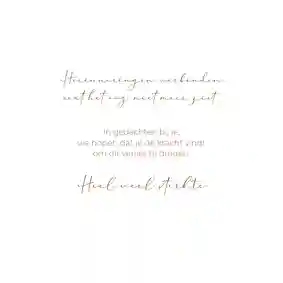 Herinneringen verbinden
wat het oog niet meer ziet
In gedachten bij je,
we hopen dat je de kracht vindt
om dit verlies te dragen
Heel veel sterkte